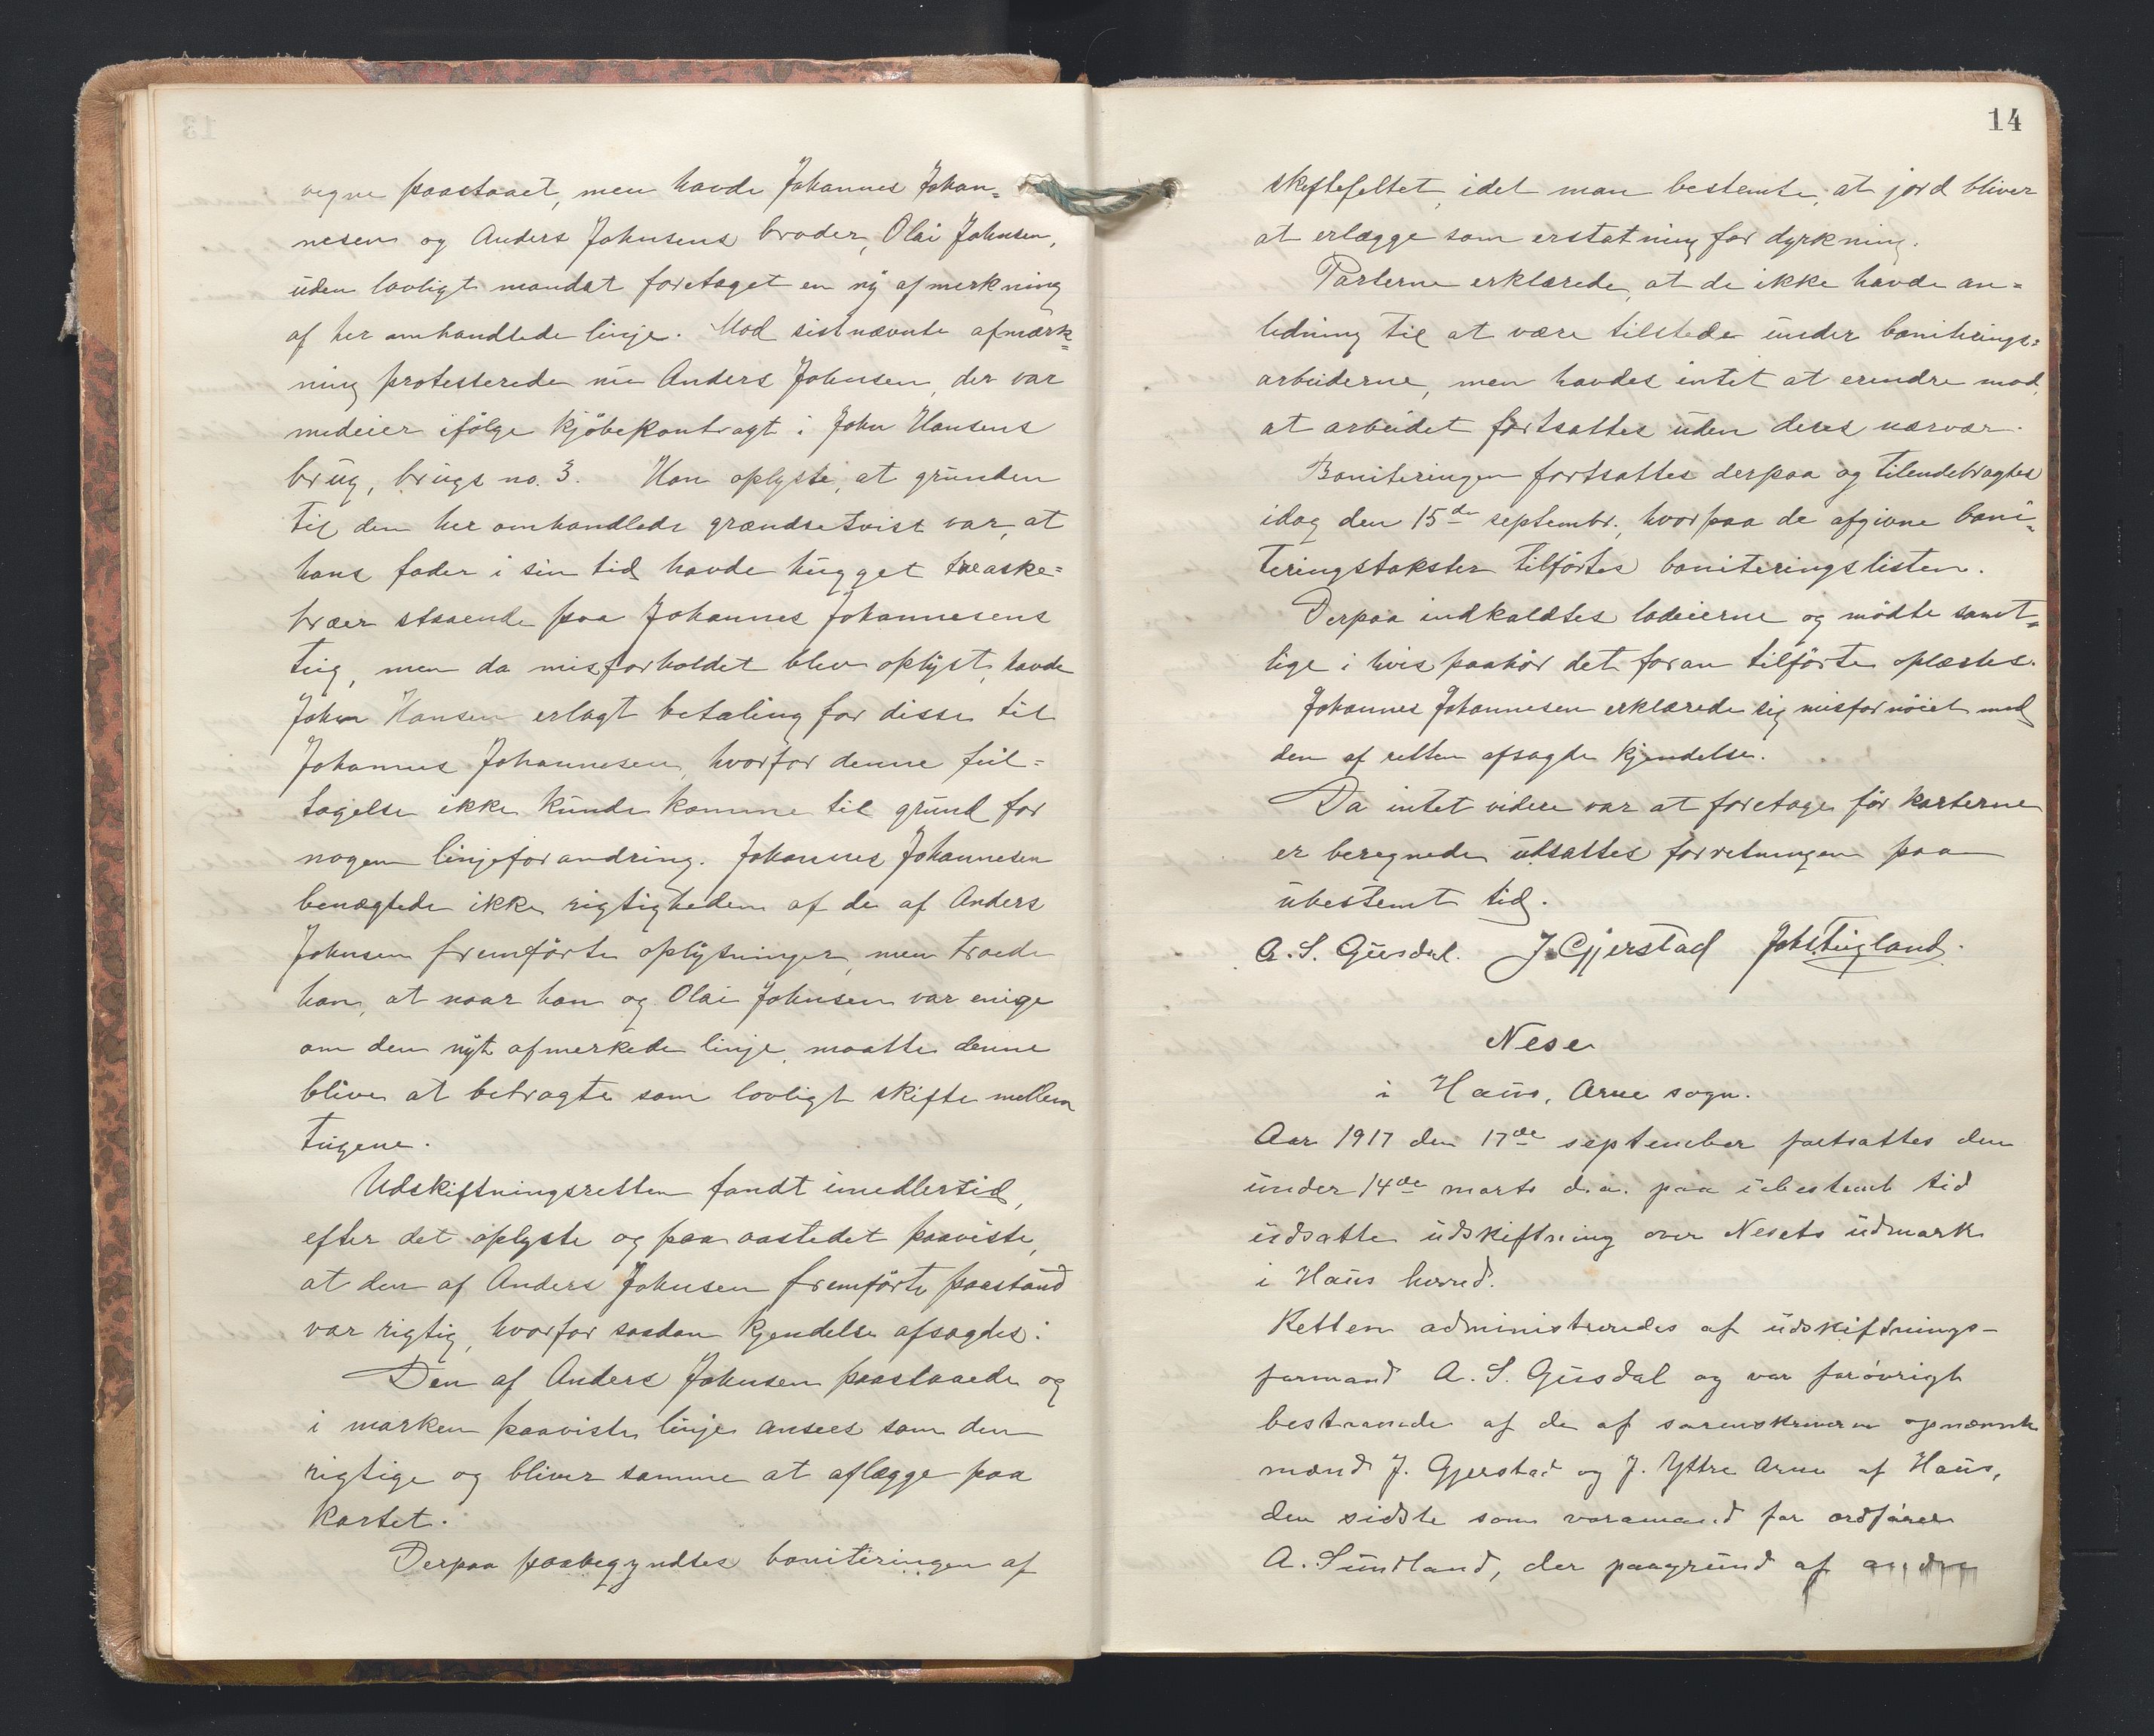 vegne paastaaet, men havde Johannes Johan=
nesen og Anders Johnsens broder, Olai Johnsen,
uden lovligt mandat foretaget en ny afmerkning
af her omhandlede linje. Mod sistnævnte afmærk=
ning protesterede nu Anders Johnsen, der var
medeier ifölge kjöbekontragt i John Hansens
brug, brugs no. 3. Han oplyste, at grunden
til den her omhandlede grændsetvist var, at
hans fader i sin tid havde hugget aske=
træer staaende paa Johannes Johannesens
teig, men da misforholdet blev oplyst, havde
John Hansen erlagt betaling for disse til
Johannes Johannesen, hvorfor denne feil=
tagelse ikke kunde komme til grund for
nogen linjeforandring. Johannes Johannesen
benægtede ikke rigtigheden af de af Anders
Johnsen fremförte oplysninger, men troede
han, at naar han og Olai Johnsen var enige
om den nyt afmerkede linje, maatte denne
blive at betragte som lovligt skifte mellem
teigene.
Udskiftningsretten fandt imedlertid,
efter det oplyste og paa aastedet paaviste,
at den af Anders Johnsen fremförte paastand
var rigtig, hvorfor saadan kjendelse afsagdes:
Den af Anders Johnsen paastaaede og
i marken paaviste linje ansees som den
rigtige og bliver samme at aflægge paa
kartet.
Derpaa paabegyndtes boniteringen af
14
skiftefeltet, idet man bestemte, at jord bliver
at erlægge som erstatning for dyrkning.
Parterne erklærede, at de ikke havde an=
ledning til at være tilstede under boniterings=
arbeiderne, men havdes intet at erindre mod,
at arbeidet fortsattes uden deres nærvær.
Boniteringen fortsattes derpaa og tilendebragtes
idag den 15de septembr., hvorpaa de afgivne boni=
teringstakster tilförtes boniteringslisten.
Derpaa indkaldtes lodeierne og mödte samt=
lige i hvis paahör det foran tilförte oplæstes.
Johannes Johannesen erklærede sig misfornöiet med
den af retten afsagde kjendelse.
Da intet videre var at foretage för karterne
er beregnede udsattes forretningen paa
ubestemt tid.
A. S. Gusdal. J. Gjerstad Johs Teigland.
Nese
i Haus, Arne sogn.
Aar 1917 den 17de september fortsattes den
under 14de marts d.a. paa ubestemt tid
udsatte udskiftning over Nesets udmark
i Haus herred.
Retten administreredes af udskiftnings-
formand A. S. Gusdal og var forövrigt
bestaaende af de af sorenskriveren opnævnte
mænd J. Gjerstad og J. Yttre Arne af Haus,
den sidste som varamand for ordförer
A. Sundland, der paagrund af andre